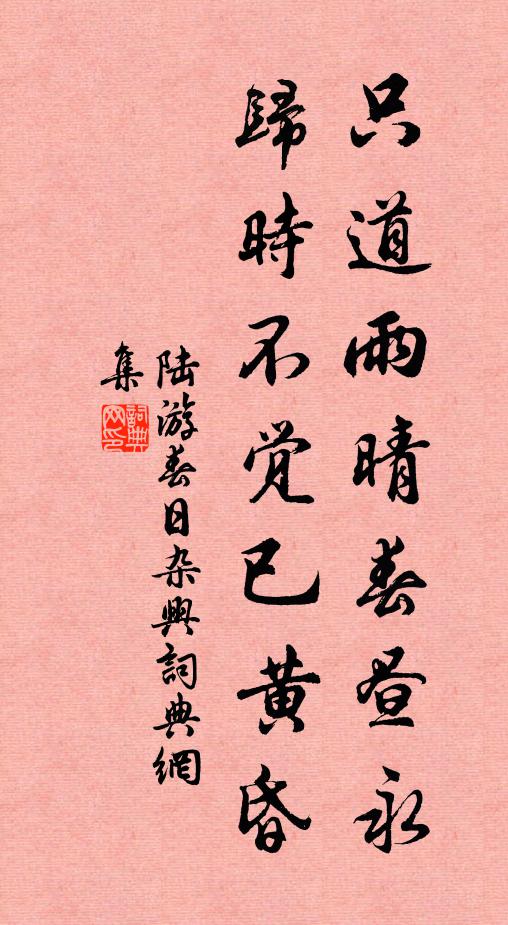 只道雨晴春昼永
歸時不觉已黄昏
陆游春日杂興詞典網
集
詞典网印